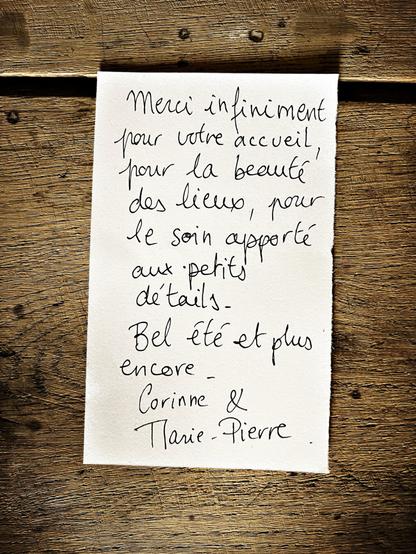 Merci infiniment
pour votre accueil,
pour la beauté
des lieux, pour
le soin apporté
aux petits
détails_
Bel été et plus
encore_
Corinne &
Marie-Pierre.